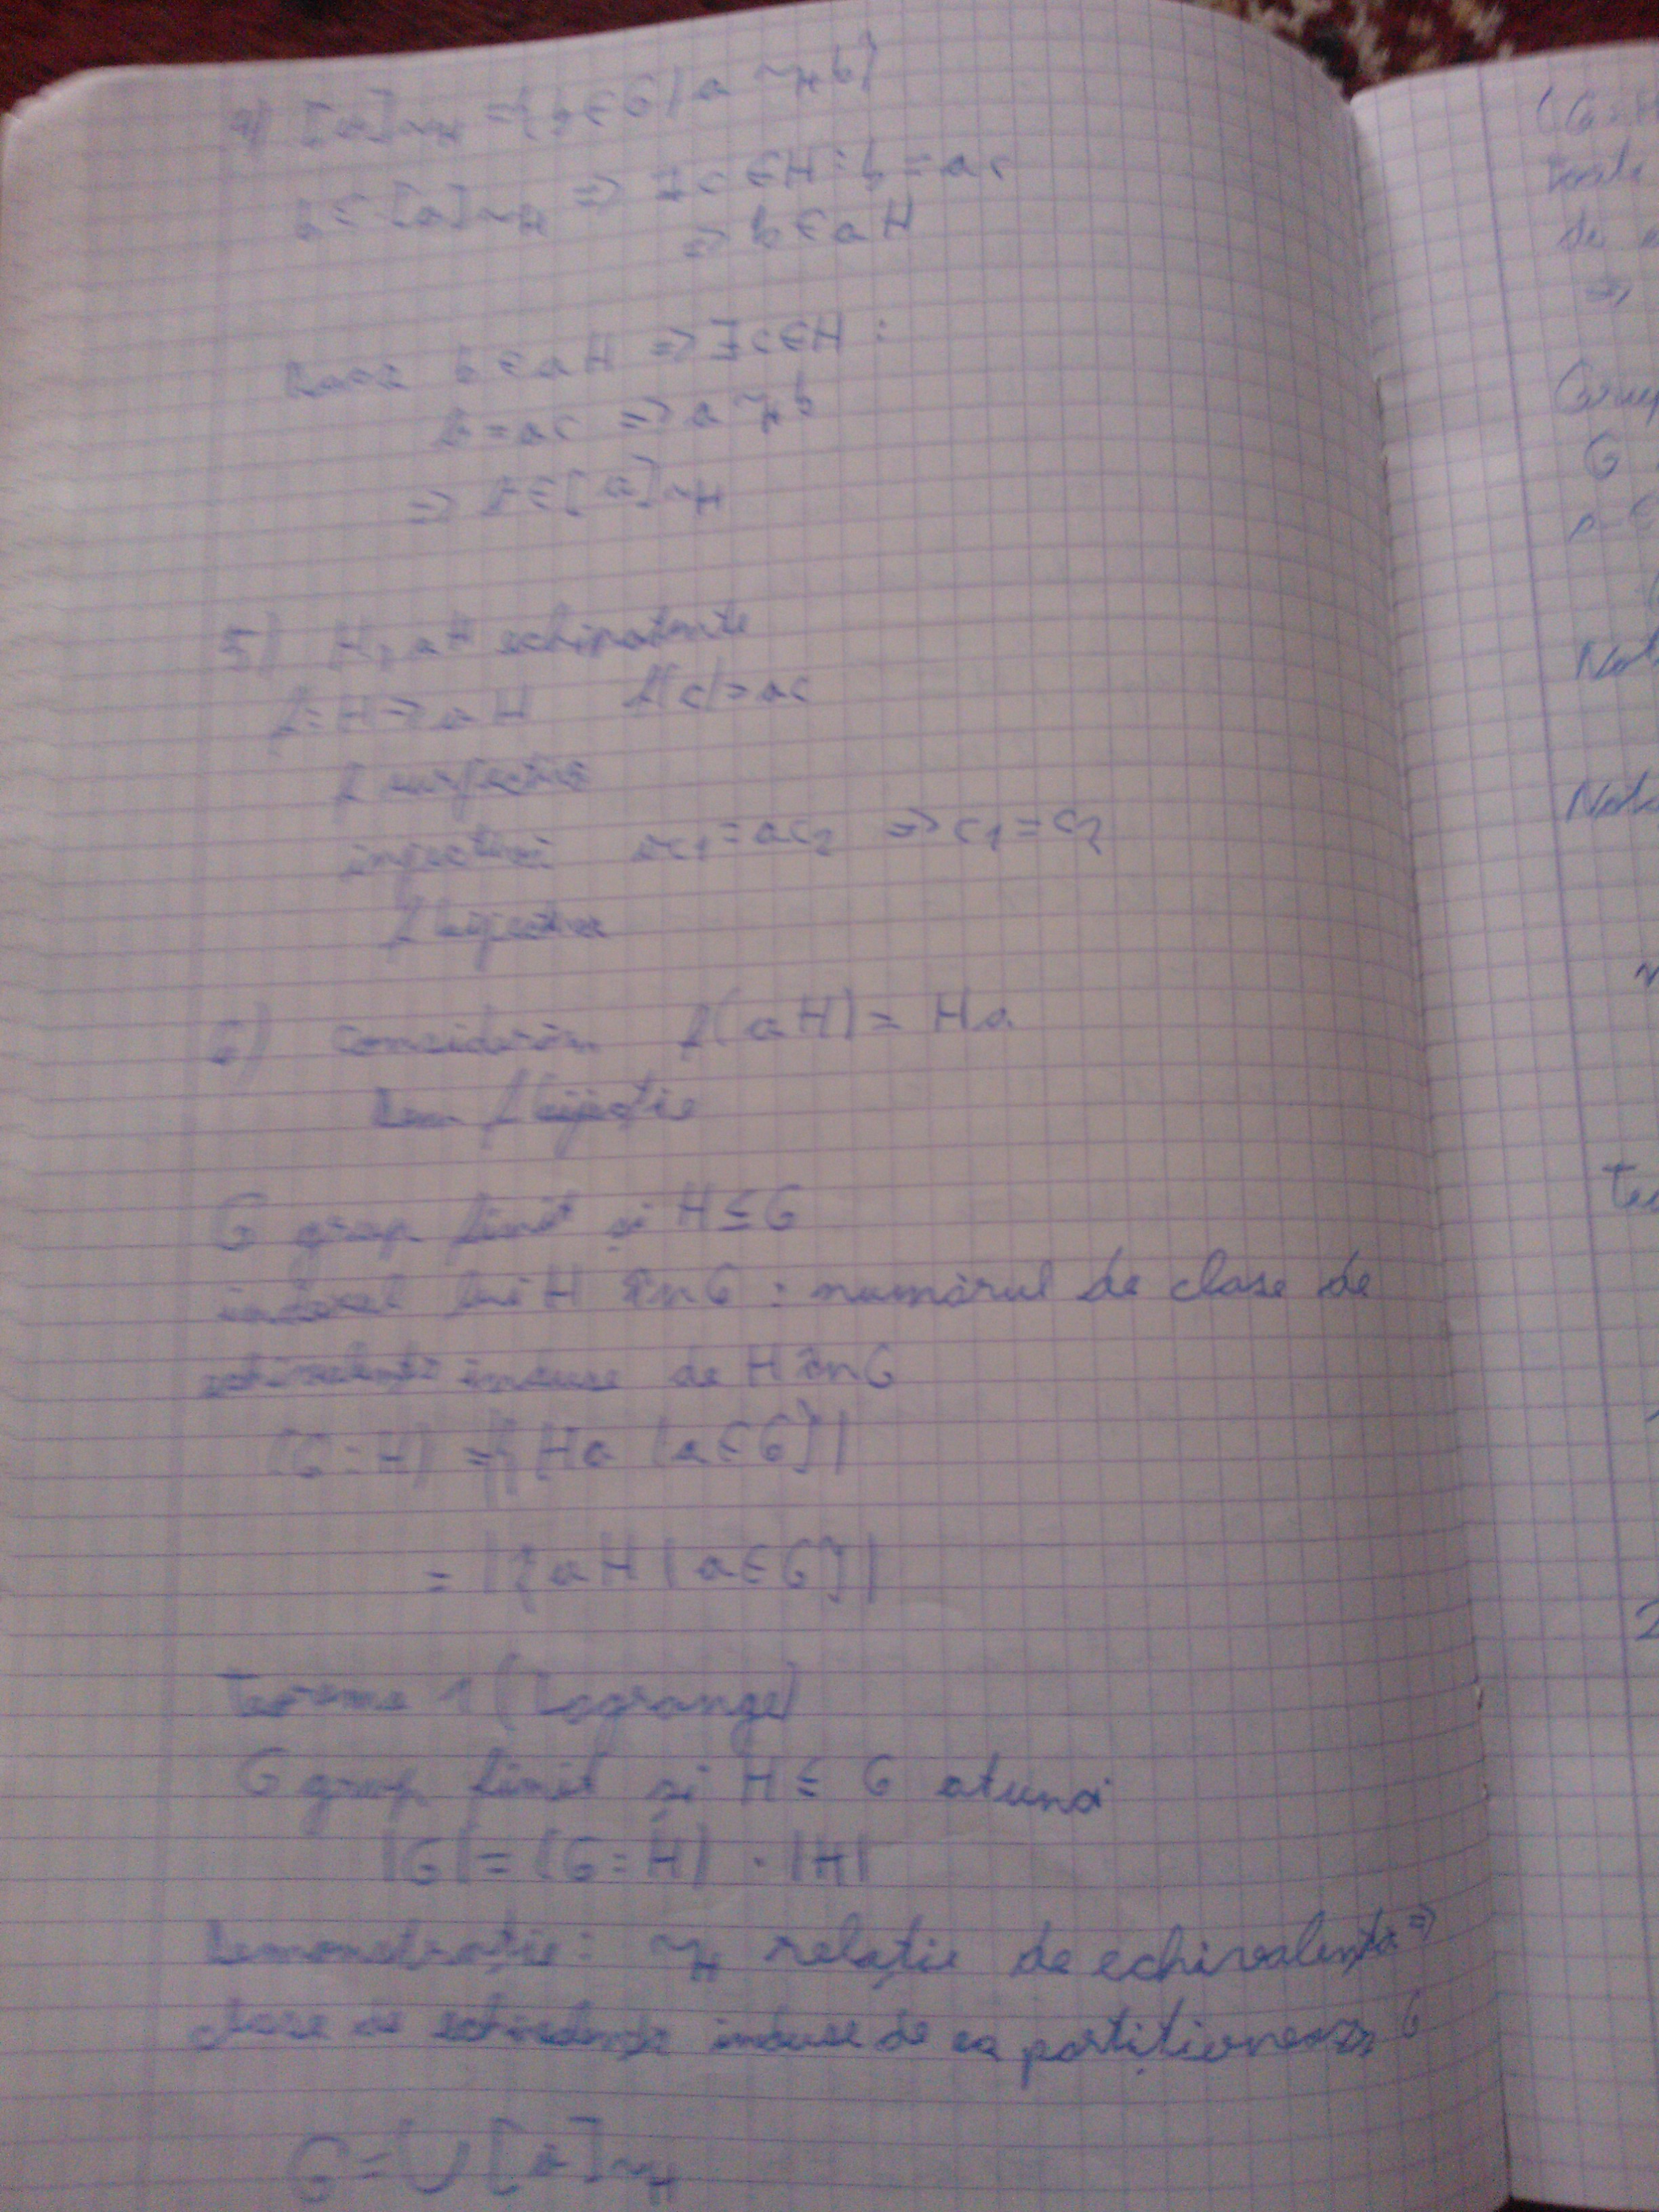 4) [a]~H = {b∈G | a ~H b}
b∈[a]~H => ∃c∈H : b = ac
=> b∈aH
Daca b∈aH => ∃c∈H :
b=ac => a ~H b
=> b∈[a]~H
5) H, aH echipotente
f: H -> aH f(c) = ac
f surjectivă
injectivă ac1 = ac2 => c1 = c2
f bijectivă
6) Considerăm f(aH) = Ha
Dem f bijecție
G grup finit și H ≤ G
indexul lui H în G : numărul de clase de
echivalență induse de H în G
(G:H) = |{Ha | a∈G}|
= |{aH | a∈G}|
Teorema 1 (Lagrange)
G grup finit și H ≤ G atunci
|G| = (G:H) · |H|
Demonstrație: ~H relație de echivalență =>
clase de echivalență induse de ea partiționează G
G = ∪ [a]~H
(G:H
de
=>
G
2